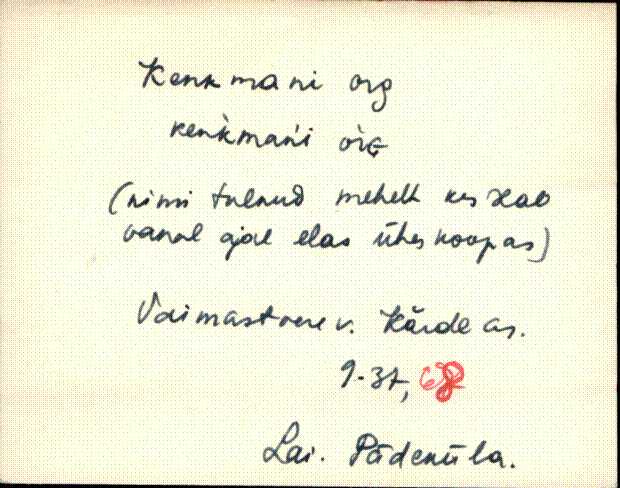 Kenkmani org
kenkmani org
(nimi tulnud mehelt kes seal
vanal ajal elas ühes koopas)
Vaimastvere v. Kärde as.
9-37, 68
Lai. Pädeküla.